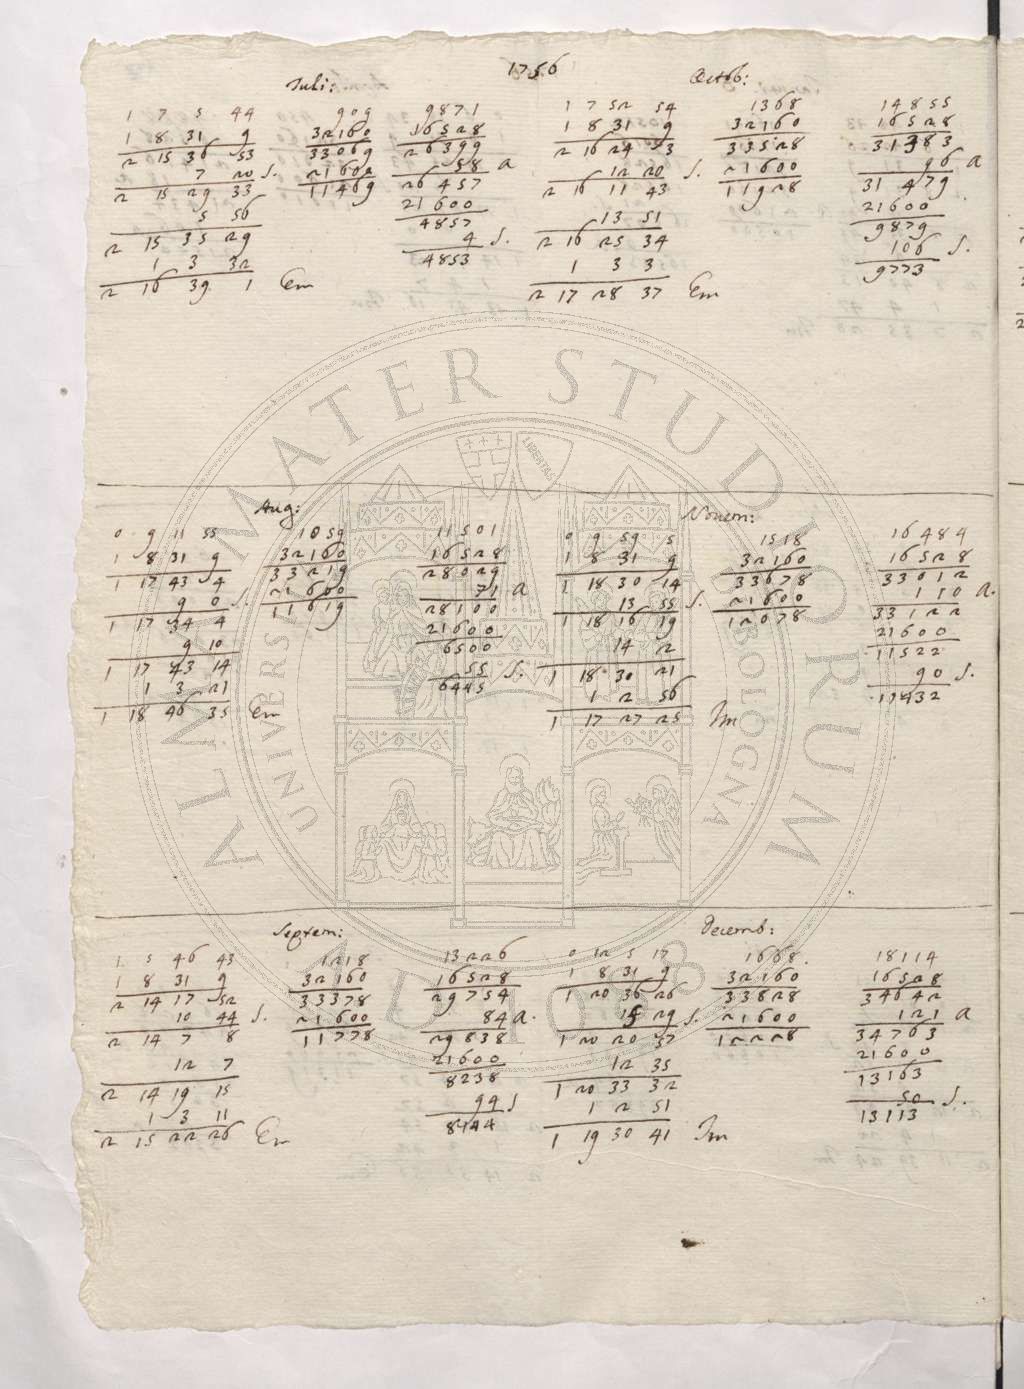 1756
Iuli:
1 7 5 44 909 9871
1 8 31 9 32160 16528
2 15 36 53 33069 26399
7 20 S. 21600 58 a
2 15 29 33 11469 26457
5 56 21600
2 15 35 29 4857
1 3 32 4 S.
2 16 39 1 Em 4853
Octob:
1 7 52 54 1368 14855
1 8 31 9 32160 16528
2 16 24 3 33528 31383
12 20 S. 21600 96 a
2 16 11 43 11928 31479
13 51 21600
2 16 25 34 9879
1 3 3 106 S.
2 17 28 37 Em 9773
Aug:
0 9 11 55 1059 11501
1 8 31 9 32160 16528
1 17 43 4 33219 28029
9 0 S. 21600 71 a
1 17 34 4 11619 28100
9 10 21600
1 17 43 14 6500
1 3 21 55 S.
1 18 46 35 Em 6445
Nouem:
0 9 59 5 1518 16484
1 8 31 9 32160 16528
1 18 30 14 33678 33012
13 55 S. 21600 110 a.
1 18 16 19 12078 33122
14 2 21600
1 18 30 21 11522
1 2 56 90 S.
1 17 27 25 Im 11432
Septem:
1 5 46 43 1218 13226
1 8 31 9 32160 16528
2 14 17 52 33378 29754
10 44 S. 21600 84 a.
2 14 7 8 11778 29838
12 7 21600
2 14 19 15 8238
1 3 11 94 S
2 15 22 26 Em 8144
Decemb:
0 12 5 17 1668. 18114
1 8 31 9 32160 16528
1 20 36 26 33828 34642
15 29 S. 21600 121 a
1 20 20 57 12228 34763
12 35 21600
1 20 33 32 13163
1 2 51 50 S.
1 19 30 41 Im 13113
ALMA MATER STUDIORUM
UNIVERSITÀ DI BOLOGNA
LIBERTAS
A.D. 1088